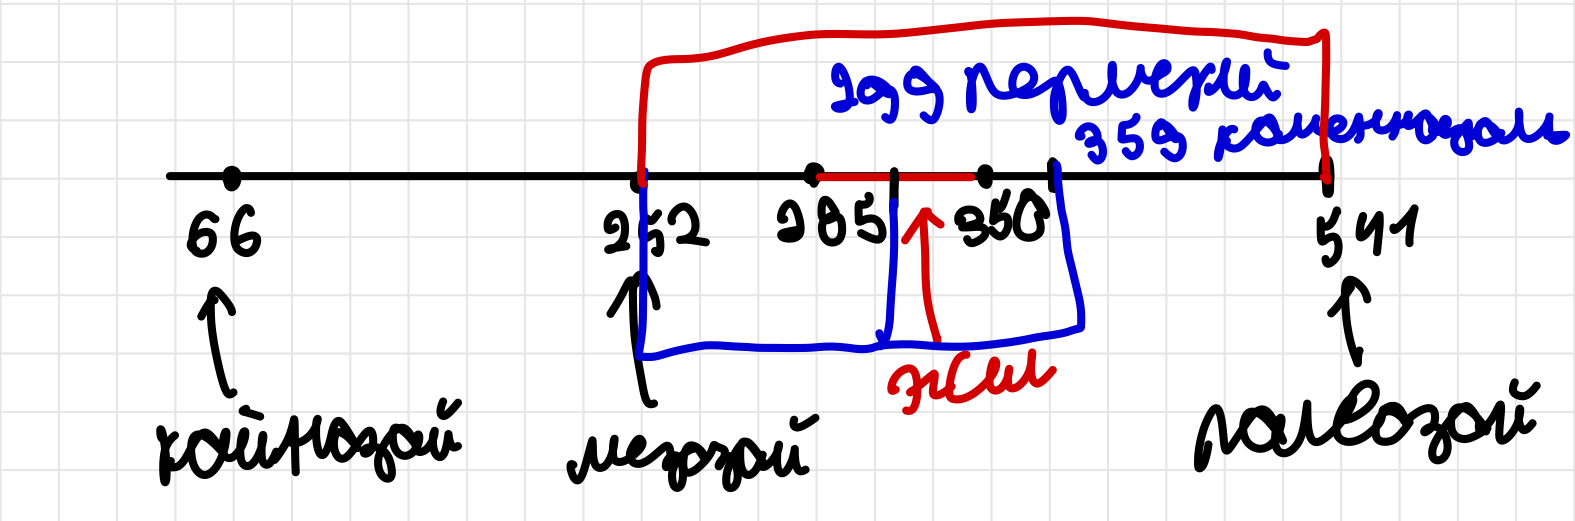 299 пермский
359 каменноуголь
66 252 285 350 541
жил
кайнозой мезозой палеозой